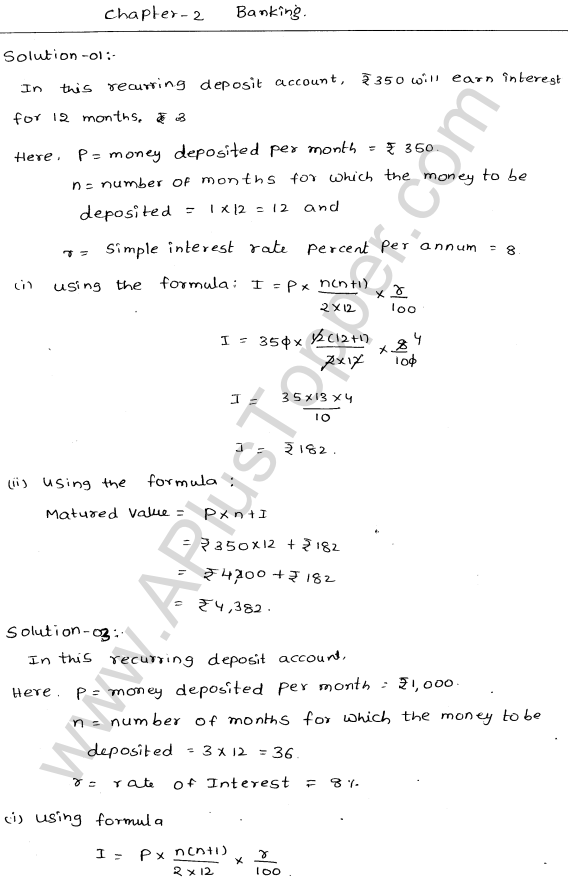 Chapter-2 Banking.
Solution-01:-
In this recurring deposit account, ₹350 will earn interest
for 12 months,
Here, P = money deposited per month = ₹ 350.
n = number of months for which the money to be
deposited = 1 × 12 = 12 and
r = Simple interest rate percent per annum = 8
(i) Using the formula: I = P × n(n+1)/2×12 × r/100
I = 350 × 12(12+1)/2×12 × 8/100 4
I = 35×13×4/10
I = ₹182.
(ii) Using the formula:
Matured Value = P×n+I
= ₹350×12 + ₹182
= ₹4,200 + ₹182
= ₹4,382.
Solution-03:-
In this recurring deposit account,
Here. P = money deposited per month = ₹1,000.
n = number of months for which the money to be
deposited = 3 × 12 = 36.
r = rate of Interest = 8%
(i) Using formula
I = P × n(n+1)/2×12 × r/100.
www.APlusTopper.com